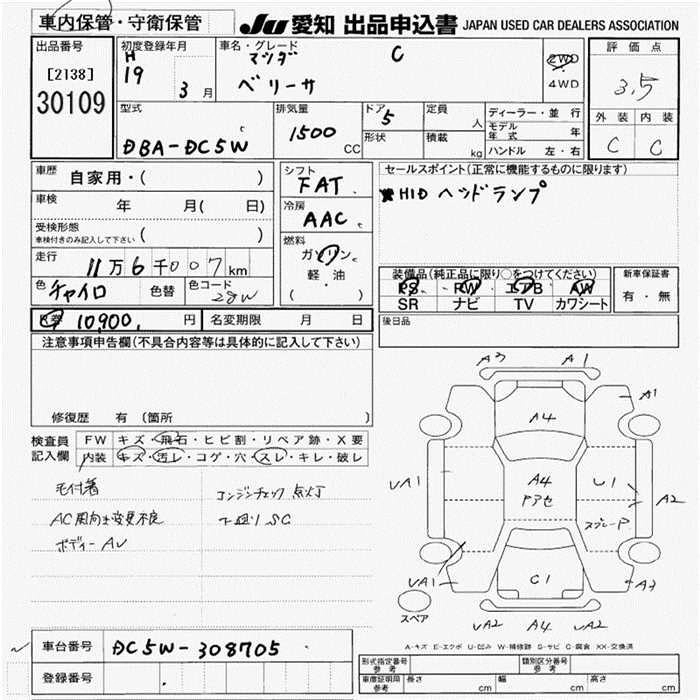 車内保管・守衛保管
JU 愛知 出品申込書 JAPAN USED CAR DEALERS ASSOCIATION
出品番号
[2138]
30109
初度登録年月
H
19 3 月
車名・グレード
マツダ C
ベリーサ
2WD
4WD
評価点
3.5
外装 内装
C C
型式
DBA-DC5W
排気量
1500 CC
ドア 5
形状
定員 人
積載 kg
ディーラー・並行
モデル年式 年
ハンドル 左・右
車歴 自家用・( )
車検 年 月( 日)
受検形態
車検付きのみ記入して下さい ( )
走行 11万6千007km
色 チャイロ 色替 色コード 28W
シフト
FAT
冷房
AAC
燃料
ガソリン
軽・油
( )
セールスポイント(正常に機能するものに限ります)
HID ヘッドランプ
装備品(純正品に限り○をつけてください)
PS PW エアB AW
SR ナビ TV カワシート
新車保証書
有・無
後日品
R券 10,900. 円 名変期限 月 日
注意事項申告欄(不具合内容等は具体的に記入して下さい)
修復歴 有 (箇所 )
検査員記入欄
FW キズ・飛石・ヒビ割・リペア跡・X要
内装 キズ・汚レ・コゲ・穴・スレ・キレ・破レ
毛付着
エンジンチェック点灯
AC風向き変更不良
下廻りSC
ボディーAU
A3 A1
A1
A4
UA1
A4
ドアセ
U1
A2
スプレーP
UA1
C1
A3
スペア
UA2 A4 UA2
A-キズ E-エクボ U-凹み W-補修跡 S-サビ C-腐食 XX-交換済
車台番号 DC5W-308705
登録番号
形式指定番号
参考
類別区分番号
参考
車庫証明用
参考
長さ cm 幅 cm 高さ cm